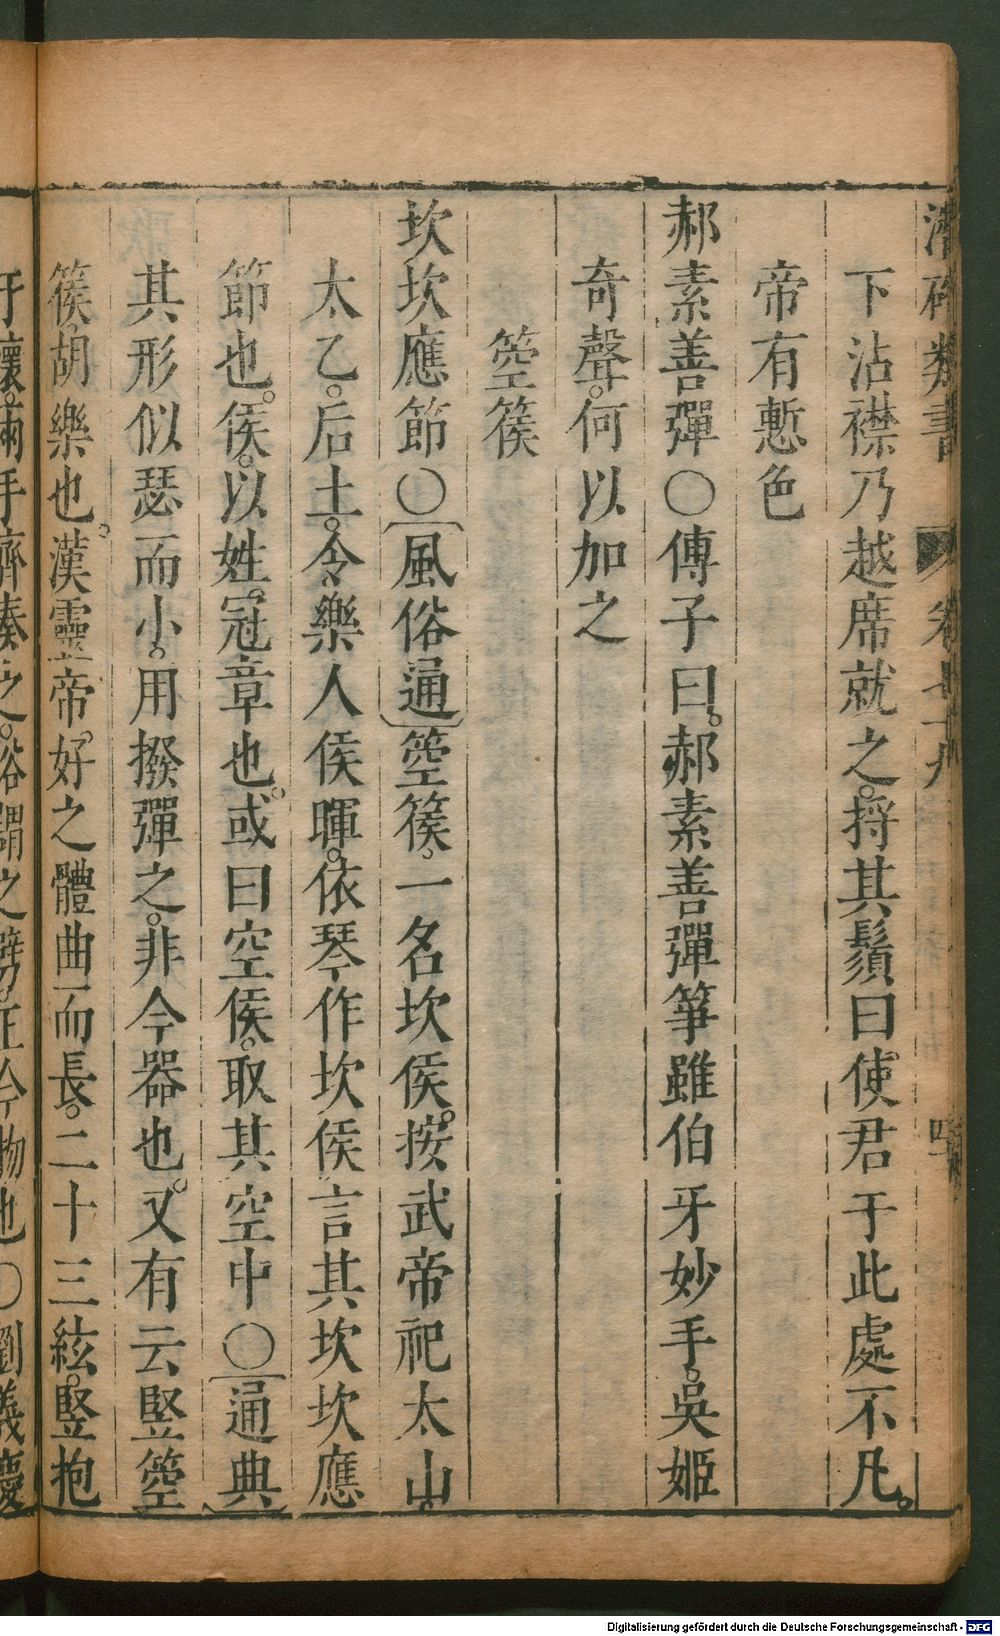 潛確類書 卷七十九 四
下沾襟乃越席就之。捋其鬚曰使君于此處不凡。
帝有慙色
郝素善彈〇傅子曰。郝素善彈箏雖伯牙妙手。吳姬
奇聲。何以加之
箜篌
坎坎應節〇〔風俗通〕箜篌、一名坎侯。按武帝祀太山、
太乙。后土。令樂人侯暉。依琴作坎侯言其坎坎應
節也。侯。以姓。冠章也。或曰空侯。取其空中〇〔通典〕
其形似瑟而小。用撥彈之。非今器也。又有云竪箜
篌。胡樂也。漢靈帝。好之體曲而長。二十三絃。竪抱
于懷。兩手齊奏之。俗謂之擘。正今物也〇劉義慶
Digitalisierung gefördert durch die Deutsche Forschungsgemeinschaft - DFG